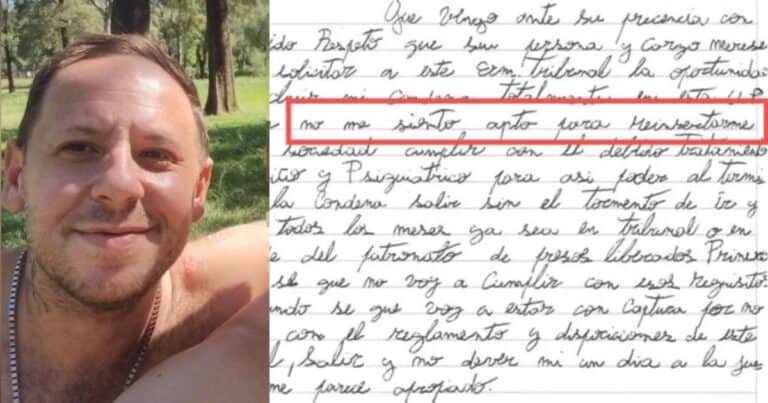 Que vengo ante su precencia con
ido Respeto que sum persona y cargo merese
solicitar a este Exm. tribunal la oportunida
mi condena totalmente en esta U.P.
no me siento apto para reinsertarme
sociedad cumplir con el debido tratamiento
ico y Psiquiatrico para asi poder al termi
la Condena salir sin el tormento de ir y
todos los meses ya sea en tribunal o en
e del patronato de presos liberados Primero
se que no voy a Cumplir con esos requisito
ndo se que voy a estar con Captura por no
con el reglamento y disposiciones de este
l, Salir y no dever mi un dia a la jus
me parece apropiado.